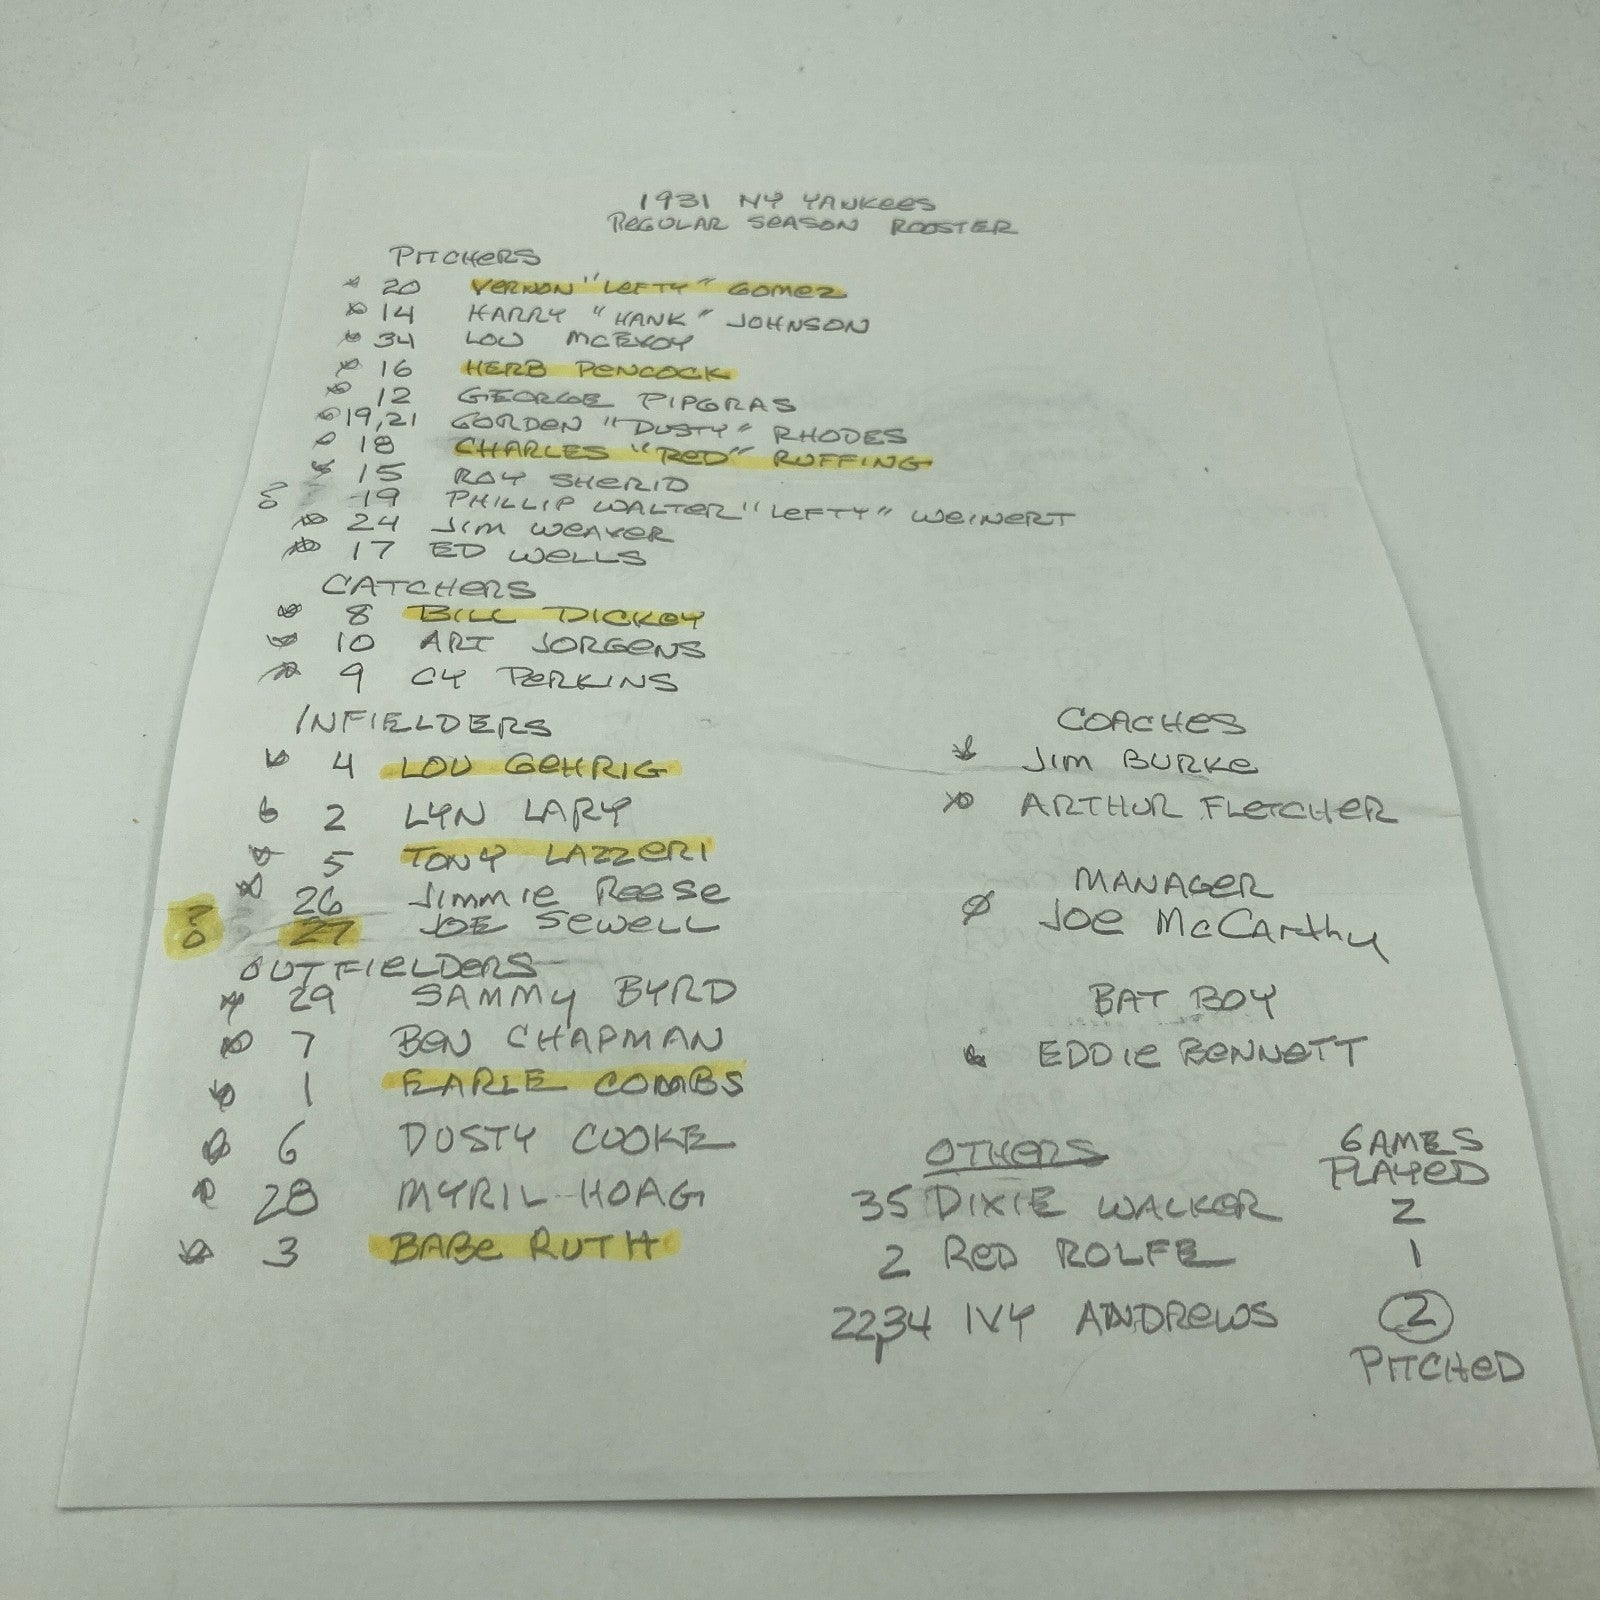 1931 NY YANKEES
REGULAR SEASON ROOSTER
PITCHERS
20 VERNON "LEFTY" GOMEZ
14 HARRY "HANK" JOHNSON
34 LOU McEVOY
16 HERB PENCOCK
12 GEORGE PIPGRAS
19,21 GORDEN "DUSTY" RHODES
18 CHARLES "RED" RUFFING
15 ROY SHERID
? 19 PHILLIP WALTER "LEFTY" WEINERT
24 JIM WEAVER
17 ED WELLS
CATCHERS
8 BILL DICKEY
10 ART JORGENS
9 CY PERKINS
INFIELDERS
4 LOU GEHRIG
2 LYN LARY
5 TONY LAZZERI
26 JIMMIE REESE
? 27 JOE SEWELL
OUTFIELDERS
29 SAMMY BYRD
7 BEN CHAPMAN
1 EARLE COMBS
6 DUSTY COOKE
28 MYRIL HOAG
3 BABE RUTH
COACHES
JIM BURKE
ARTHUR FLETCHER
MANAGER
JOE McCARthy
BAT BOY
EDDIE BENNETT
OTHERS GAMES
PLAYED
35 DIXIE WALKER 2
2 RED ROLFE 1
22,34 IVY ANDREWS 2
PITCHED